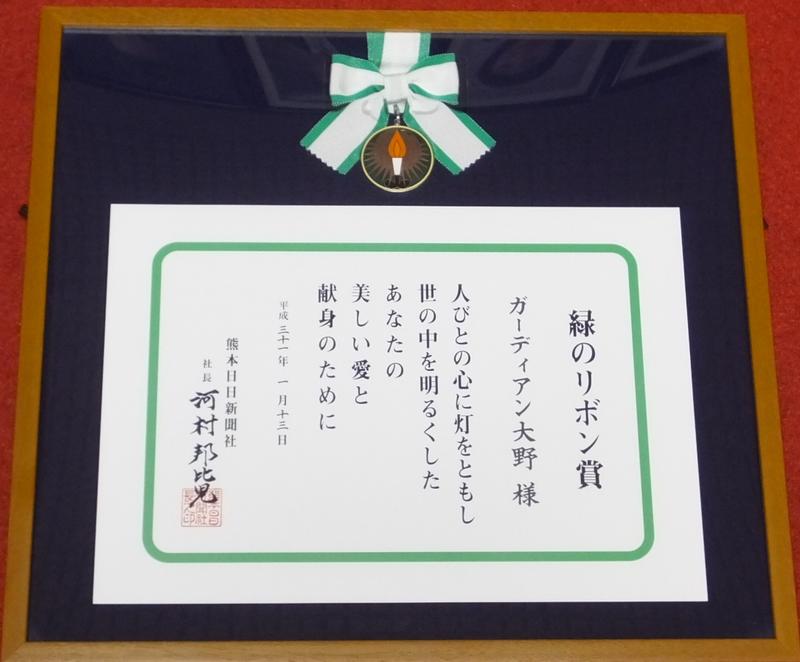 緑のリボン賞
ガーディアン大野 様
人びとの心に灯をともし
世の中を明るくした
あなたの
美しい愛と
献身のために
平成三十一年 一月十三日
熊本日日新聞社
社長 河村邦比児